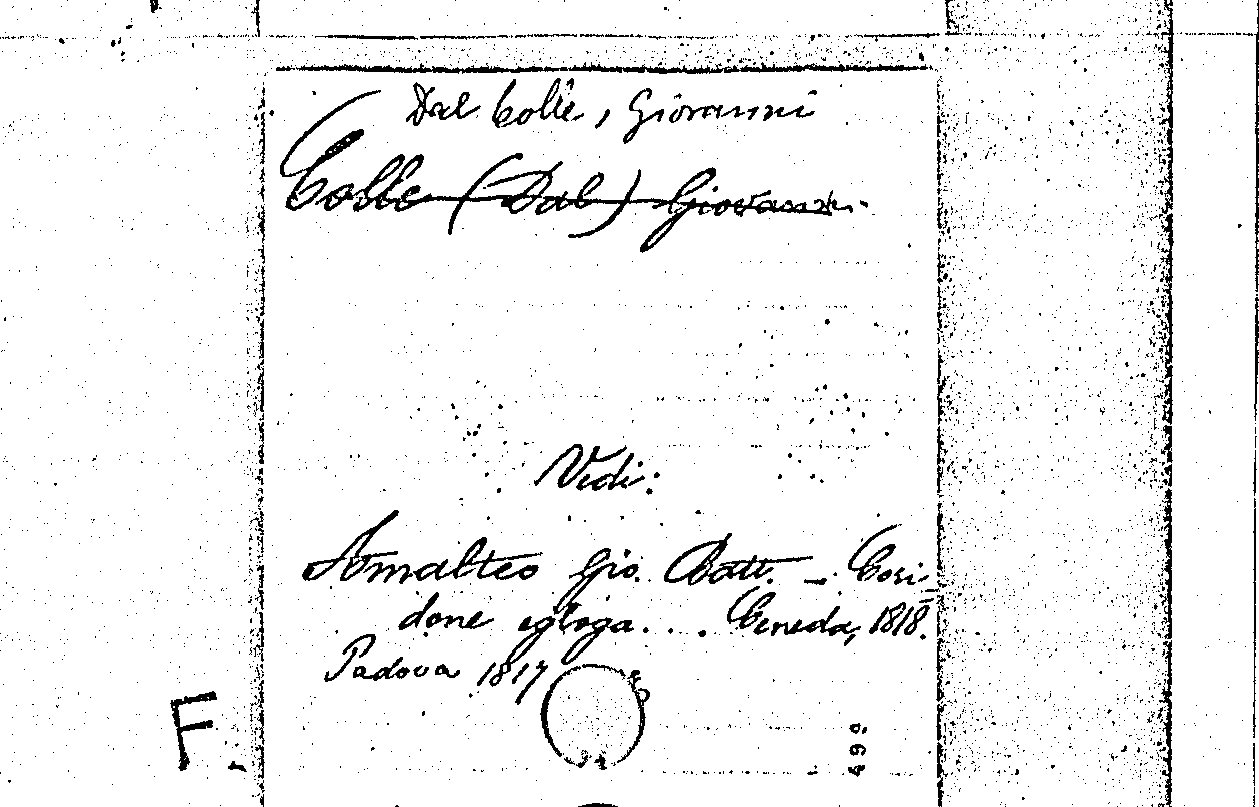 Dal Colle, Giovanni
Colle (Dal) Giovanni
Vedi:
Amalteo Gio. Batt. – Cori-
done egloga... Ceneda, 1818.
Padova 1817
F.
499